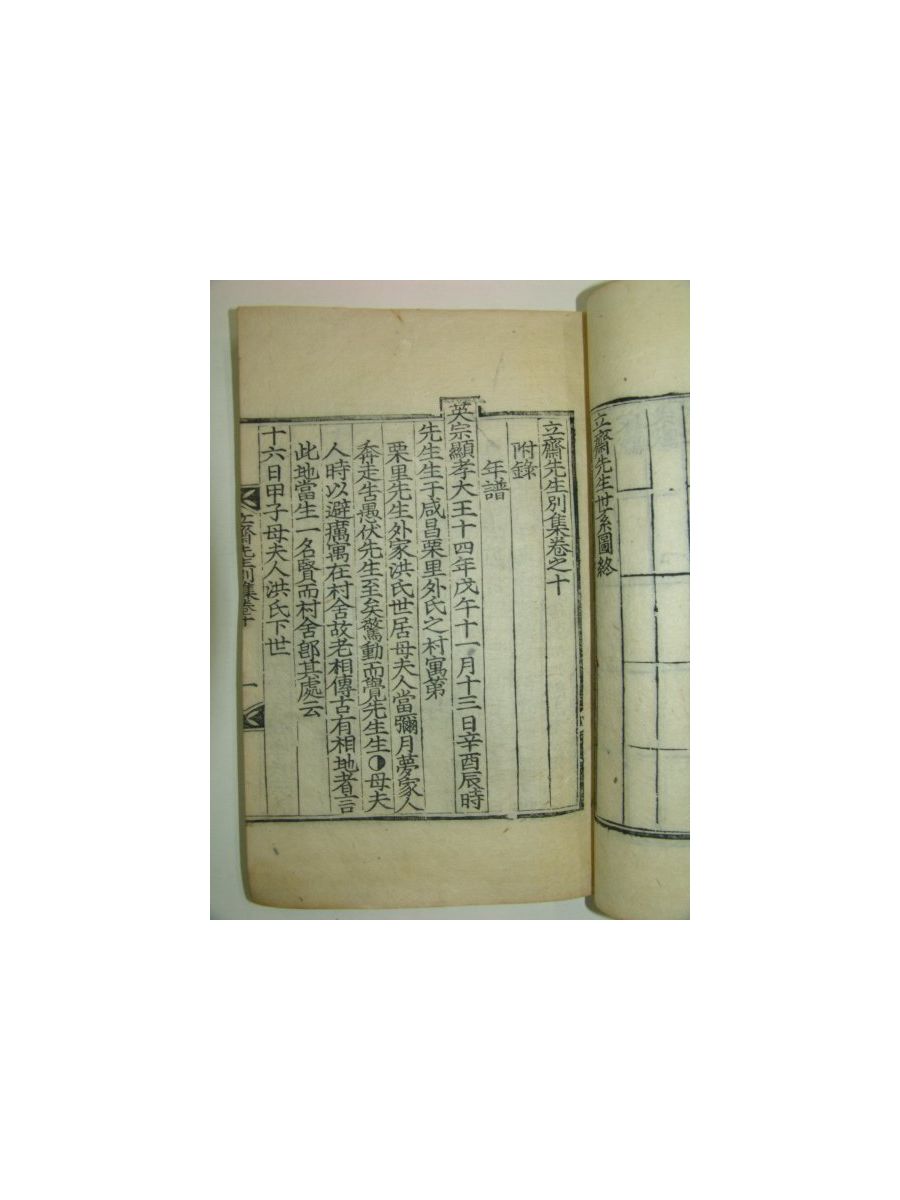 立齋先生世系圖終
立齋先生別集卷之十
附錄
年譜
英宗顯孝大王十四年戊午十一月十三日辛酉辰時
先生生于咸昌栗里外氏之村寓第
栗里先生外家洪氏世居母夫人當彌月夢家人
奔走告愚伏先生至矣驚動而覺先生生◑母夫
人時以避癘寓在村舍故老相傳古有相地者言
此地當生一名賢而村舍卽其處云
十六日甲子母夫人洪氏下世
立齋先生別集卷十 一